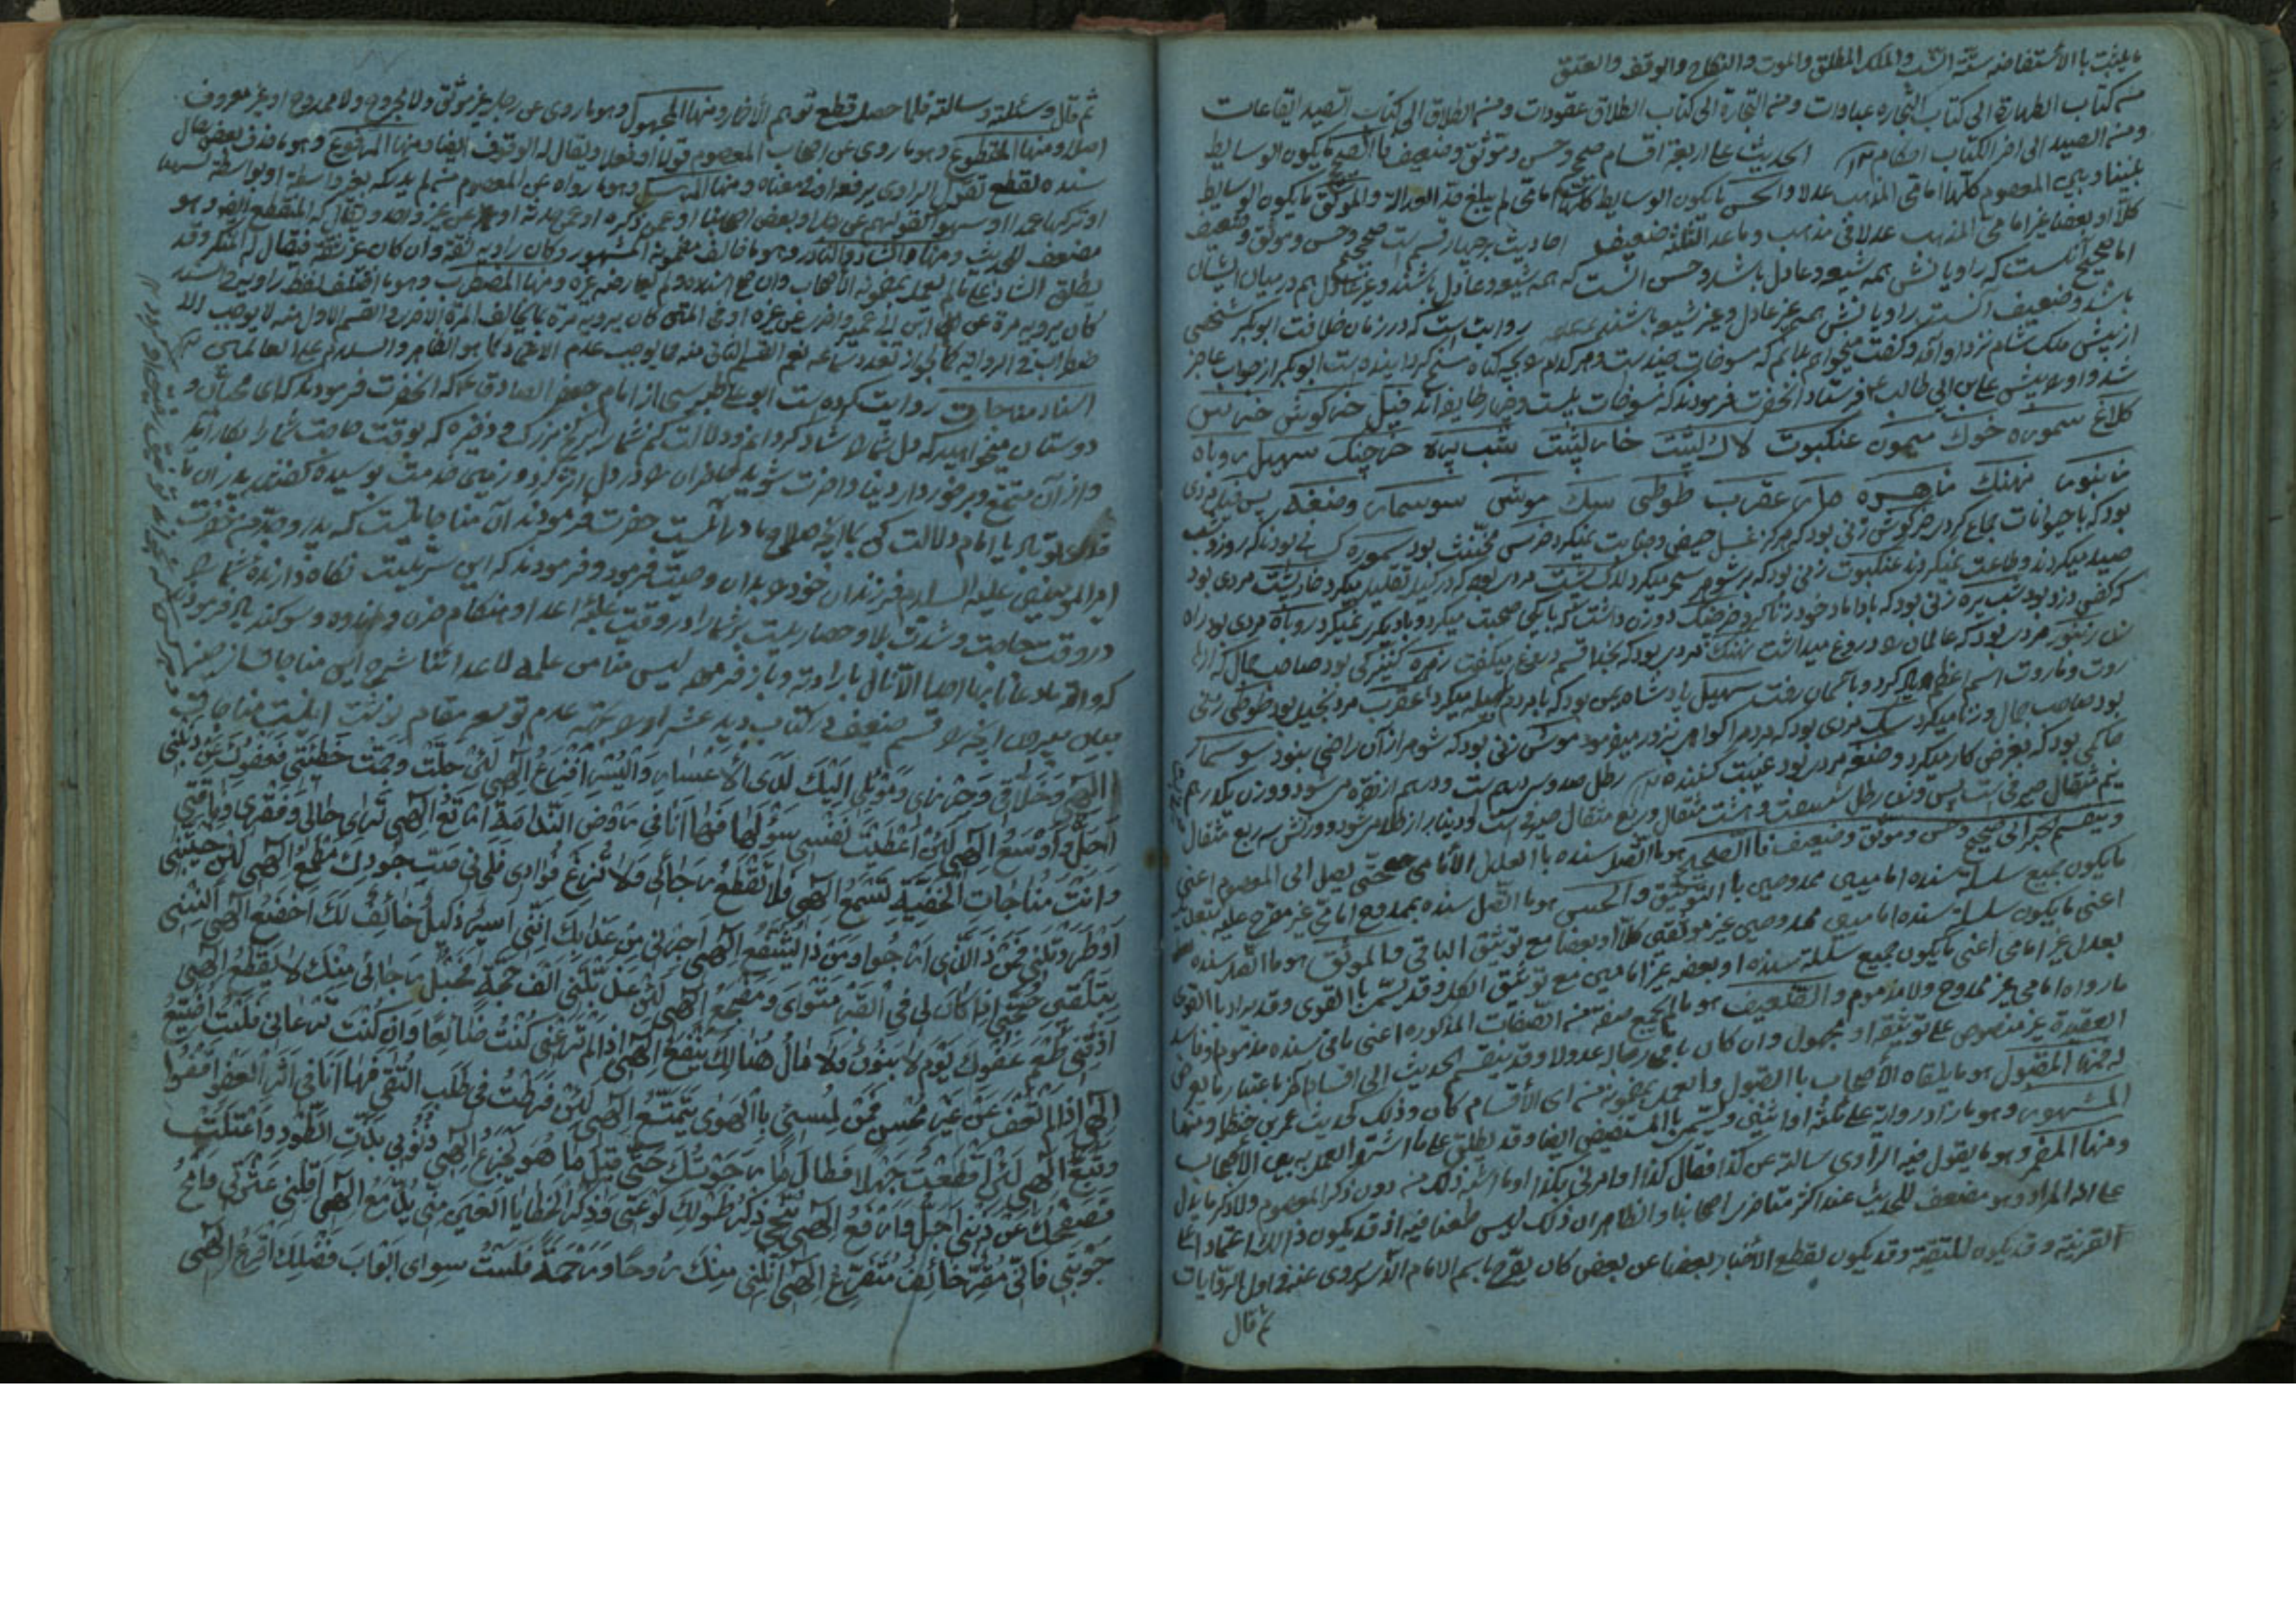 یثبت بالأستفاضه ستّة النسب والملك المطلق والموت والنكاح والوقف والعتق
من كتاب الطهارة الى كتاب التجاره عبادات ومن التجارة الى كتاب الطلاق عقودات ومن الطلاق الى كتاب الصيد ايقاعات
ومن الصيد الى اخر الكتاب احكام الحديث على اربعة اقسام صحيح وحسن وموثق وضعيف فا الصحيح ما يكون الوسايط
بيننا وبين المعصوم كلّها امامى المذهب عدلا والحسن ما يكون الوسايط كلها امامى لم يبلغ حد العدالة والموثق ما يكون الوسايط
كلاّ او بعضا غير امامى المذهب عدلا فى مذهب وما عد الثلثة ضعيف احاديث بر چهار قسم است صحيح وحسن وموثق وضعيف
اما صحيح آنست كه راويانش همه شيعه وعادل باشد وحسن انست كه همه شيعه وعادل باشند وغير عادل هم در ميان ايشان
باشد وضعيف انست راويانش همه غير عادل وغير شيعه باشند روايت است كه در زمان خلافت ابوبكر شخصى
از پيش ملك شام نزد او آمد وگفت ميخواهم بدانم كه مسوخات چندست وهر كدام بچه گناه مسخ گرديده است ابوبكر از جواب عاجز
شد واو را پيش على بن ابى طالب فرستاد انحضرت فرمودند كه مسوخات بيست وچهار طايفه اند فيل خرگوش خرس
كلاغ سموره خوك ميمون عنكبوت لاك پشت خارپشت شب پره خرچنگ سهيل روباه
زنبور نهنك زهره مار عقرب طوطى سك موش سوسمار وضغه پس فيل مردى
بود كه با حيوانات جماع كردى خرگوش زنى بود كه هرگز غسل حيض وجنابت نميكرد خرس مخنث بود سموره كسانى بودند كه روز شنبه
صيد ميكردند وطاعت نميكردند عنكبوت زنى بود كه بر شوهر سحر ميكرد لاك پشت مردى بود كه در كيل تقليب ميكرد خارپشت مردى بود
كه كفن دزد بود شب پره زنى بود كه با داماد خود زنا كرد خرچنگ دو زن داشت كه با يكى صحبت ميكرد وبا ديگرى نميكرد روباه مردى بود راه
زن زنبور مردى بود كه عالمان را دروغ ميداشت نهنك مردى بود كه بخدا قسم دروغ ميگفت زهره كنيزكى بود صاحب جمال كه از ها
روت وماروت اسم اعظم كرد وبا آسمان رفت سهيل پادشاه يمن بود كه با مردم حيله ميكرد عقرب مرد بخيل بود طوطى زنى
بود صاحب جمال وزنا ميكرد سك مردى بود كه مردم را گواهى بزور ميفرمود موش زنى بود كه شوهر از آن راضى نبود سوسمار
حاكمى بود كه بغرض كار ميكرد وضغه مردى بود غيبت كننده رطل صد وسى درهم است ودرهم از نقره مى شود ووزن يكدرهم
نيم مثقال صيرفى است پس وزن رطل شصت وهشت مثقال وربع مثقال صيرفى است ودينار از طلا مى شود ووزنش سه ربع مثقال
وينقسم الخبر الى صحيح وحسن وموثق وضعيف فا الصحيح هو ما اتّصل سنده با العدل الأمامى حتى يصل الى المعصوم اعنى
ما يكون جميع سلسلة سنده اماميين ممدوحين با التوثيق والحسن هو ما اتّصل سنده بممدوح امامى غير مصرح عليه بتعديل
اعنى ما يكون سلسلة سنده اماميين ممدوحين غير موثقين كلاّ او بعضا مع توثيق الباقى والموثق هو ما اتصل سنده
بعدل غير امامى اعنى ما يكون جميع سلسلة سنده او بعضه غير اماميين مع توثيق الكل وقد يسمى با القوى وقد يراد با القوى
ما رواه امامى غير ممدوح ولا مذموم والضعيف هو ما لم يجمع صفة من الصفات المذكوره اعنى ما فى سنده مذموم او فاسد
العقيدة غير منصوص على توثيقه او مجهول وان كان باقى رجاله عدولا وقد ينقسم الحديث الى اقسام اكثر باعتبار ما يعرض
له منها المقبول هو ما يلقاه الأصحاب با القبول والعمل بمضمونه من اى الأقسام كان وذلك كحديث عمر بن حنظله ومنها
المشهور وهو ما زاد رواية على ثلثة او اثنين ويسمى با المستفيض ايضا وقد يطلق على ما اشتهر العمل به بين الأصحاب
ومنها المضمر وهو ما يقول فيه الراوى سالته عن كذا فقال كذا او امرنى بكذا او ما اشبه ذلك من دون ذكر المعصوم ولا ذكر ما يدل
على انه المراد وهو مضعف للحديث عند اكثر متاخرى اصحابنا والظاهر ان ذلك ليس طعنا فيه اذ قد يكون ذالك اعتمادا على
القرينة وقد يكون للتقية وقد يكون لقطع الأخبار بعضها عن بعض كان يصرح باسم الامام الذى يروى عنه فى اول الروايات
ثم قال
ثم قال وسئلته وسالته فلما حصل قطع توهم الأضمار ومنها المجهول وهو ما روى عن رجل غير موثق ولا مجروح ولا ممدوح او غير معروف
اصلا ومنها المقطوع وهو ما روى عن اصحاب المعصوم قولا او فعلا ويقال له الوقوف ايضا ومنها المرفوع وهو ما حذف بعض رجال
سنده لقطع تقول الراوى يرفعه او فى معناه ومنها المرسل وهو ما رواه عن المعصوم من لم يدركه بغير واسطة او بواسطة نسيها
او تركها عمدا او سهوا كقولهم عن رجل او بعض اصحابنا او عمن ذكره او عمن حدثه او عن غير واحد ويقال له المنقطع ايضا وهو
مضعف للحديث ومنها الشاذ والنادر وهو ما خالف مضمونه المشهور وكان راويه ثقة وان كان غير ثقة فيقال له المنكر وقد
يطلق الشاذ على ما لم يعمل بمضمونه الأصحاب وان صح اسناده ولم يعارضه غيره ومنها المضطرب وهو ما اختلف لفظ راويه فى السند
كأن يرويه مرة عن ابن ابى عمير واخرى عن غيره او فى المتن كان يرويه مرة بما يخالف المرة الاخرى والقسم الاول منه لا يوجب الا
ضطراب فى الرواية لجواز تعدد سماعه نعم القسم الثانى منه مما يوجب عدم الاعتماد كما هو الظاهر والسلام على العالمين
اسناد مناجات روايت كرده است ابو على طبرسى از امام جعفر الصادق كه انحضرت فرمودند كه اى محبان و
دوستان ميخواهيد كه دل شما را شاد گردانم ودلالت كنم شما را بر گنج بزرك وذخيره كه بوقت حاجت شما را بكار آيد
واز آن متمتع وبرخوردار دنيا واخرت شويد حاضران را در دل اثر كرد وزمين خدمت بوسيده گفتند پدران ما
فداى تو باد يا امام دلالت كن ما را انچه صلاح ما در انست حضرت فرمودند آن مناجاتيست كه پدر وجد من حضرت
امير المومنين عليه السلام فرزندان خود را بدان وصيت فرمود وفرمودند كه اين سريست نگاه دارنده شما را
در وقت حاجت وشدت بلا وحصاريست بر شما در وقت غلبه اعدا وهنگام حزن واندوه وسوگند ياد فرمودند
كه والله ما دعانا بها احدا الا نال ما اراده وباز فرمود ليس منا من علمه لاعدائنا شرح اين مناجات
الهى وخلاقى وحرزى وموئلى اليك لدى الأعسار واليسر افزع الهى لئن جلت وجمت خطيئتى فعفوك عن ذنبى
اجل واوسع الهى لئن اعطيت نفسى سؤلها فها انا فى روض الندامة ارتع الهى ترى حالى وفقرى وفاقتى
وانت مناجات الخفية تسمع الهى فلا تقطع رجائى ولا تزغ فؤادى فلى فى سيب جودك مطمع الهى لئن خيبتنى
او طردتنى فمن ذا الذى ارجوا ومن ذا اشفع الهى اجرنى من عذابك اننى اسير ذليل خائف لك اخضع الهى انسنى
بتلقين حجتى اذا كان لى فى القبر مثواى ومضجع الهى لئن عذبتنى الف حجة فحبل رجائى منك لا يقطع الهى
اذقنى طعم عفوك يوم لا بنون ولا مال هنالك ينفع الهى اذا لم ترعنى كنت ضائعا وان كنت ترعانى فلست اضيع
الهى اذا لم تعف عن غير محسن فمن لمسئ با الهوى يتمتع الهى لئن فرطت فى طلب التقى فها انا فى اثر العفو اقفوا
وتبع الهى لئن قطعت جهلا فطال ما رجوتك حتى قيل ما هو يجزع الهى ذنوبى بذت الطود واعتلت
فصفحك عن ذنبى اجل وارفع الهى ينحى ذكر طولك لوعتى وذكر الخطايا العين منى يدمع الهى اقلنى عثرتى وامح
حوبتى فانى مقر خائف متضرع الهى انلنى منك روحا ورحمة فلست سوى ابواب فضلك اقرع الهى